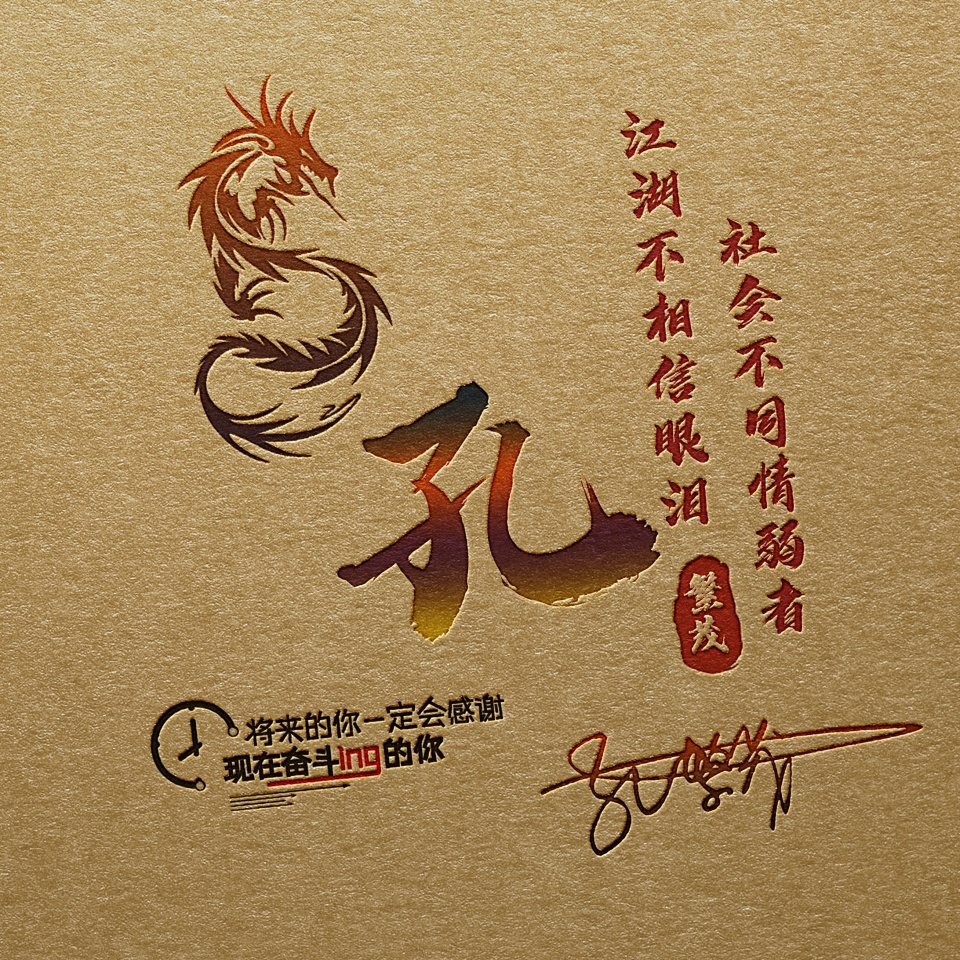 江湖不相信眼泪
社会不同情弱者
孔
繁茂
将来的你一定会感谢
现在奋斗ing的你
孔繁茂